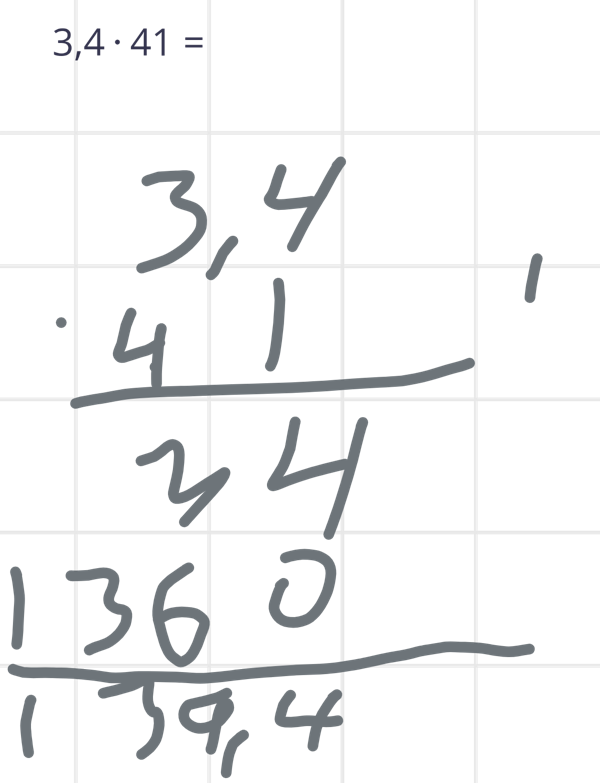 3,4 · 41 =
3,4
· 41
34
1360
139,4